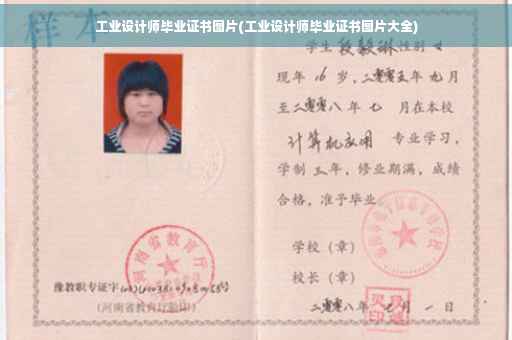 工业设计师毕业证书图片(工业设计师毕业证书图片大全)
样本
学生 段毅琳 性别 女
现年 16 岁，二零零五年 九 月
至二零零八年 七 月在本校
计算机应用 专业学习，
学制 三 年，修业期满，成绩
合格，准予毕业
学校（章）
校长（章）
二零零八年 七 月 一 日
河南省教育厅
豫教职专证字
(河南省教育厅验印)